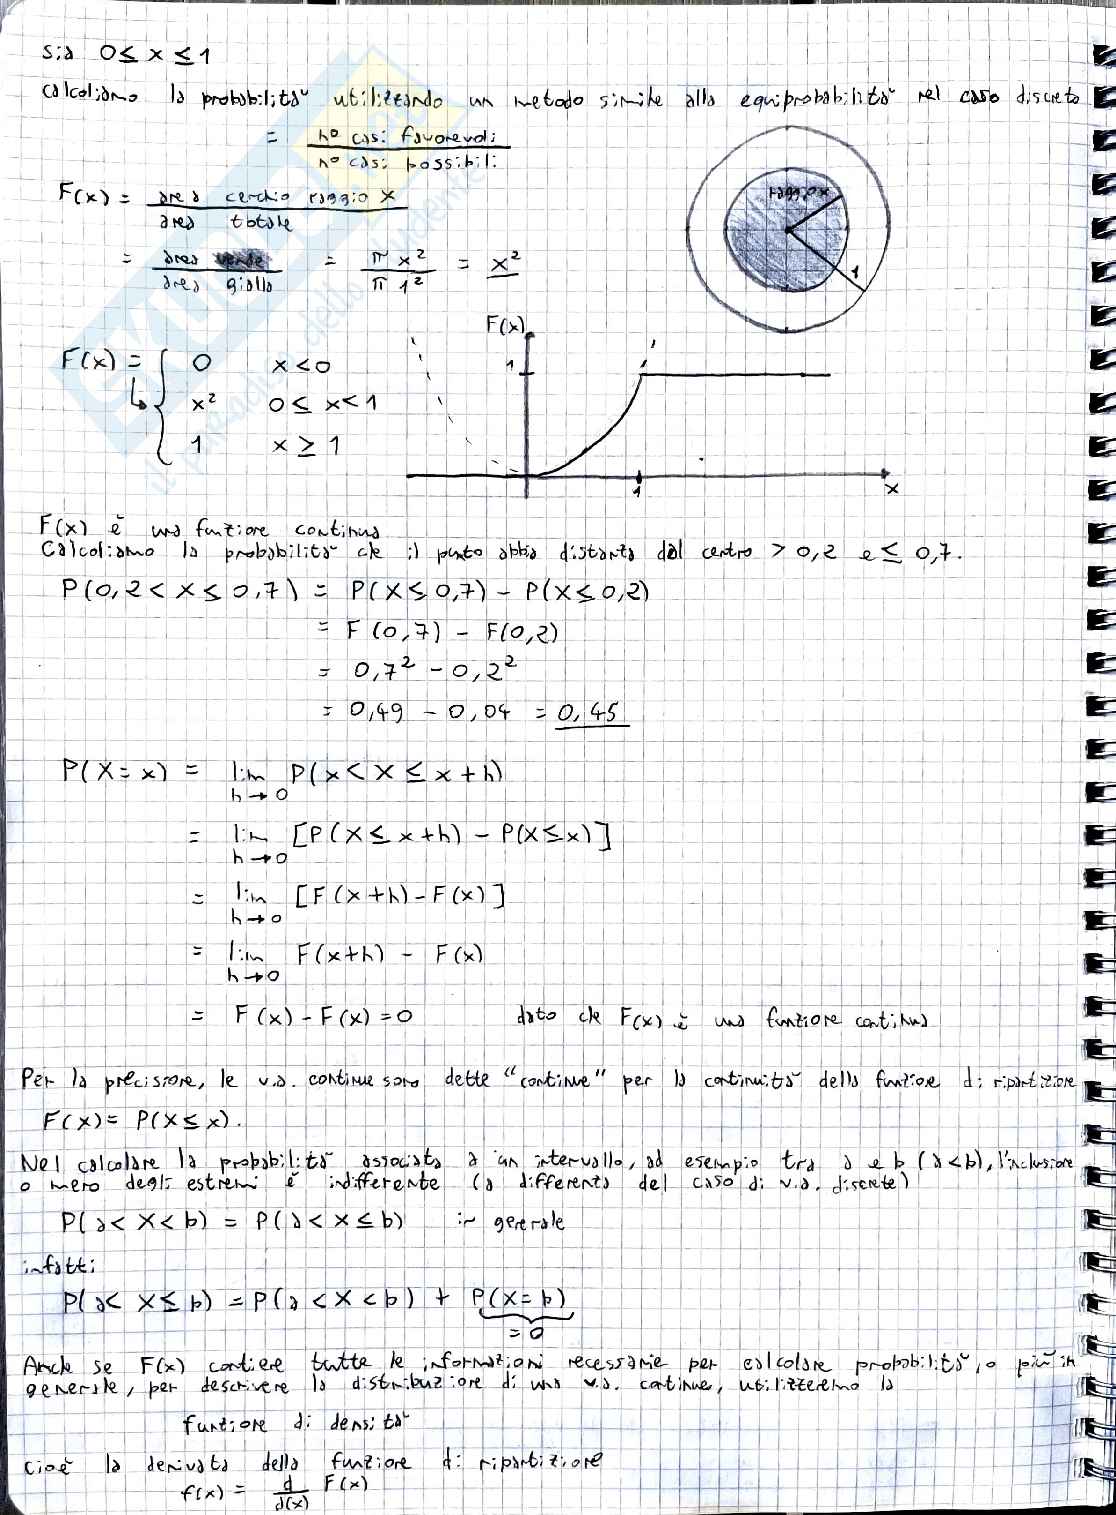 sia 0 ≤ x ≤ 1
Calcoliamo la probabilità utilizzando un metodo simile alla equiprobabilità nel caso discreto
= n° casi favorevoli / n° casi possibili
F(x) = area cerchio raggio x / area totale
raggio x
1
= area verde / area gialla = π x² / π 1² = x²
F(x)
F(x) = { 0 x < 0
x² 0 ≤ x < 1
1 x ≥ 1
1
1
x
F(x) è una funzione continua
Calcoliamo la probabilità che il punto abbia distanza dal centro > 0,2 e ≤ 0,7.
P(0,2 < X ≤ 0,7) = P(X ≤ 0,7) - P(X ≤ 0,2)
= F(0,7) - F(0,2)
= 0,7² - 0,2²
= 0,49 - 0,04 = 0,45
P(X = x) = lim h→0 P(x < X ≤ x + h)
= lim h→0 [P(X ≤ x + h) - P(X ≤ x)]
= lim h→0 [F(x+h) - F(x)]
= lim h→0 F(x+h) - F(x)
= F(x) - F(x) = 0 dato che F(x) è una funzione continua
Per la precisione, le v.a. continue sono dette "continue" per la continuità della funzione di ripartizione
F(x) = P(X ≤ x).
Nel calcolare la probabilità associata a un intervallo, ad esempio tra a e b (a<b), l'inclusione
o meno degli estremi è indifferente (a differenza del caso di v.a. discrete)
P(a < X < b) = P(a < X ≤ b) in generale
infatti
P(a < X ≤ b) = P(a < X < b) + P(X = b)
= 0
Anche se F(x) contiene tutte le informazioni necessarie per calcolare probabilità, o più in
generale, per descrivere la distribuzione di una v.a. continue, utilizzeremo la
funzione di densità
cioè la derivata della funzione di ripartizione
f(x) = d / d(x) F(x)
il paradiso dello studente